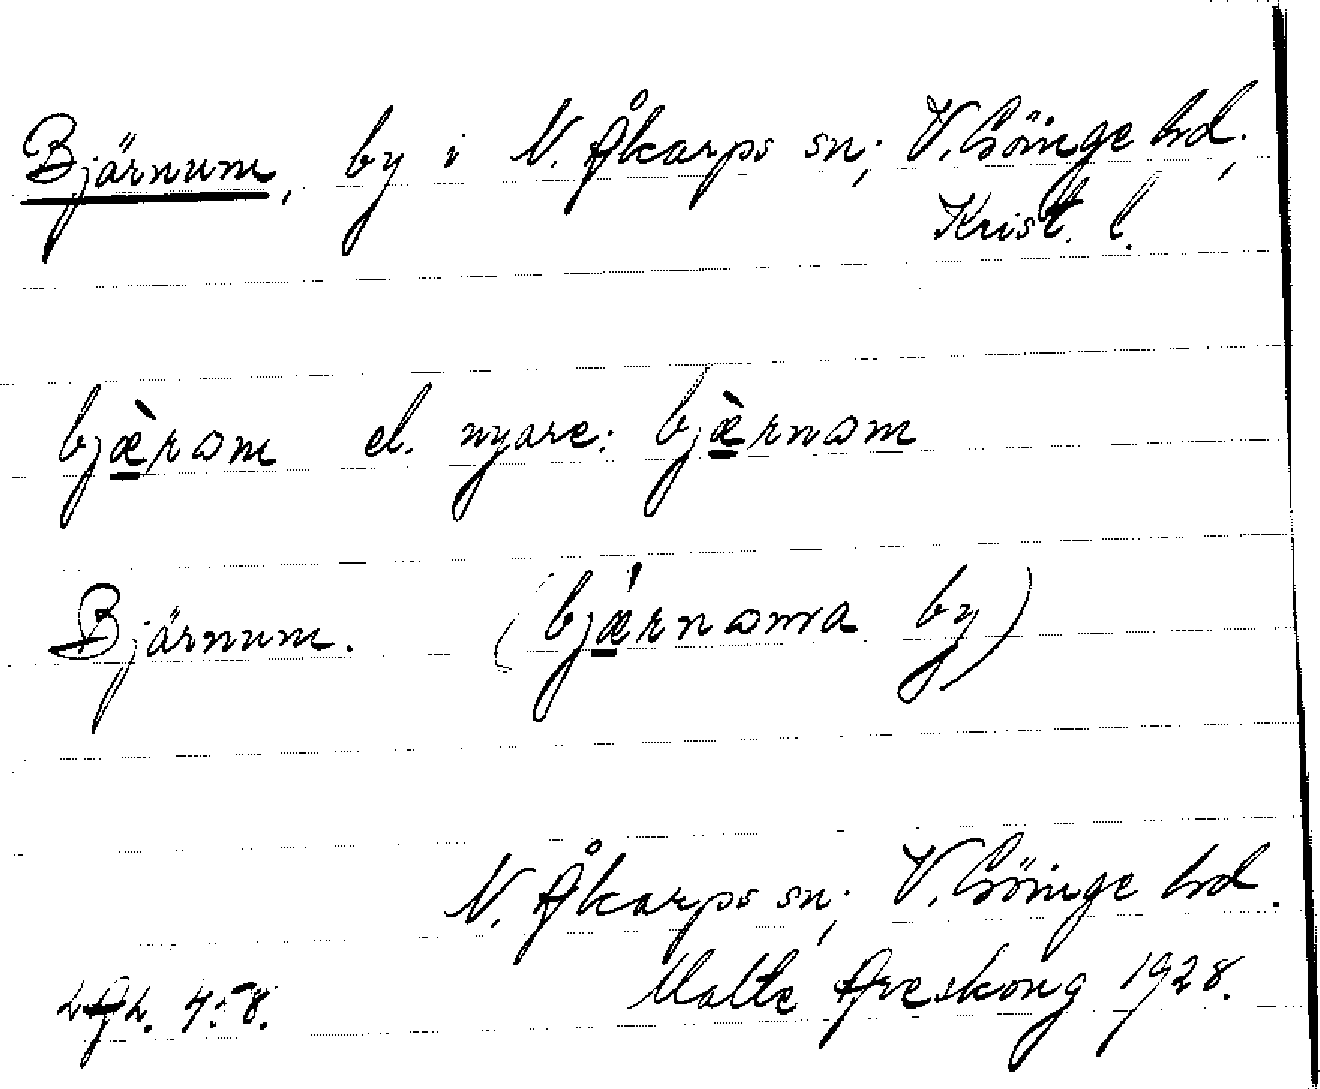 Bjärnum, by i N. Åkarps sn; V. Göinge hd;
Krist. l.
bjæ̀rom el. nyare: bjæ̀rnom
Bjärnum. (bjǽrnoma by)
N. Åkarps sn; V. Göinge hd.
Malte Areskong 1928.